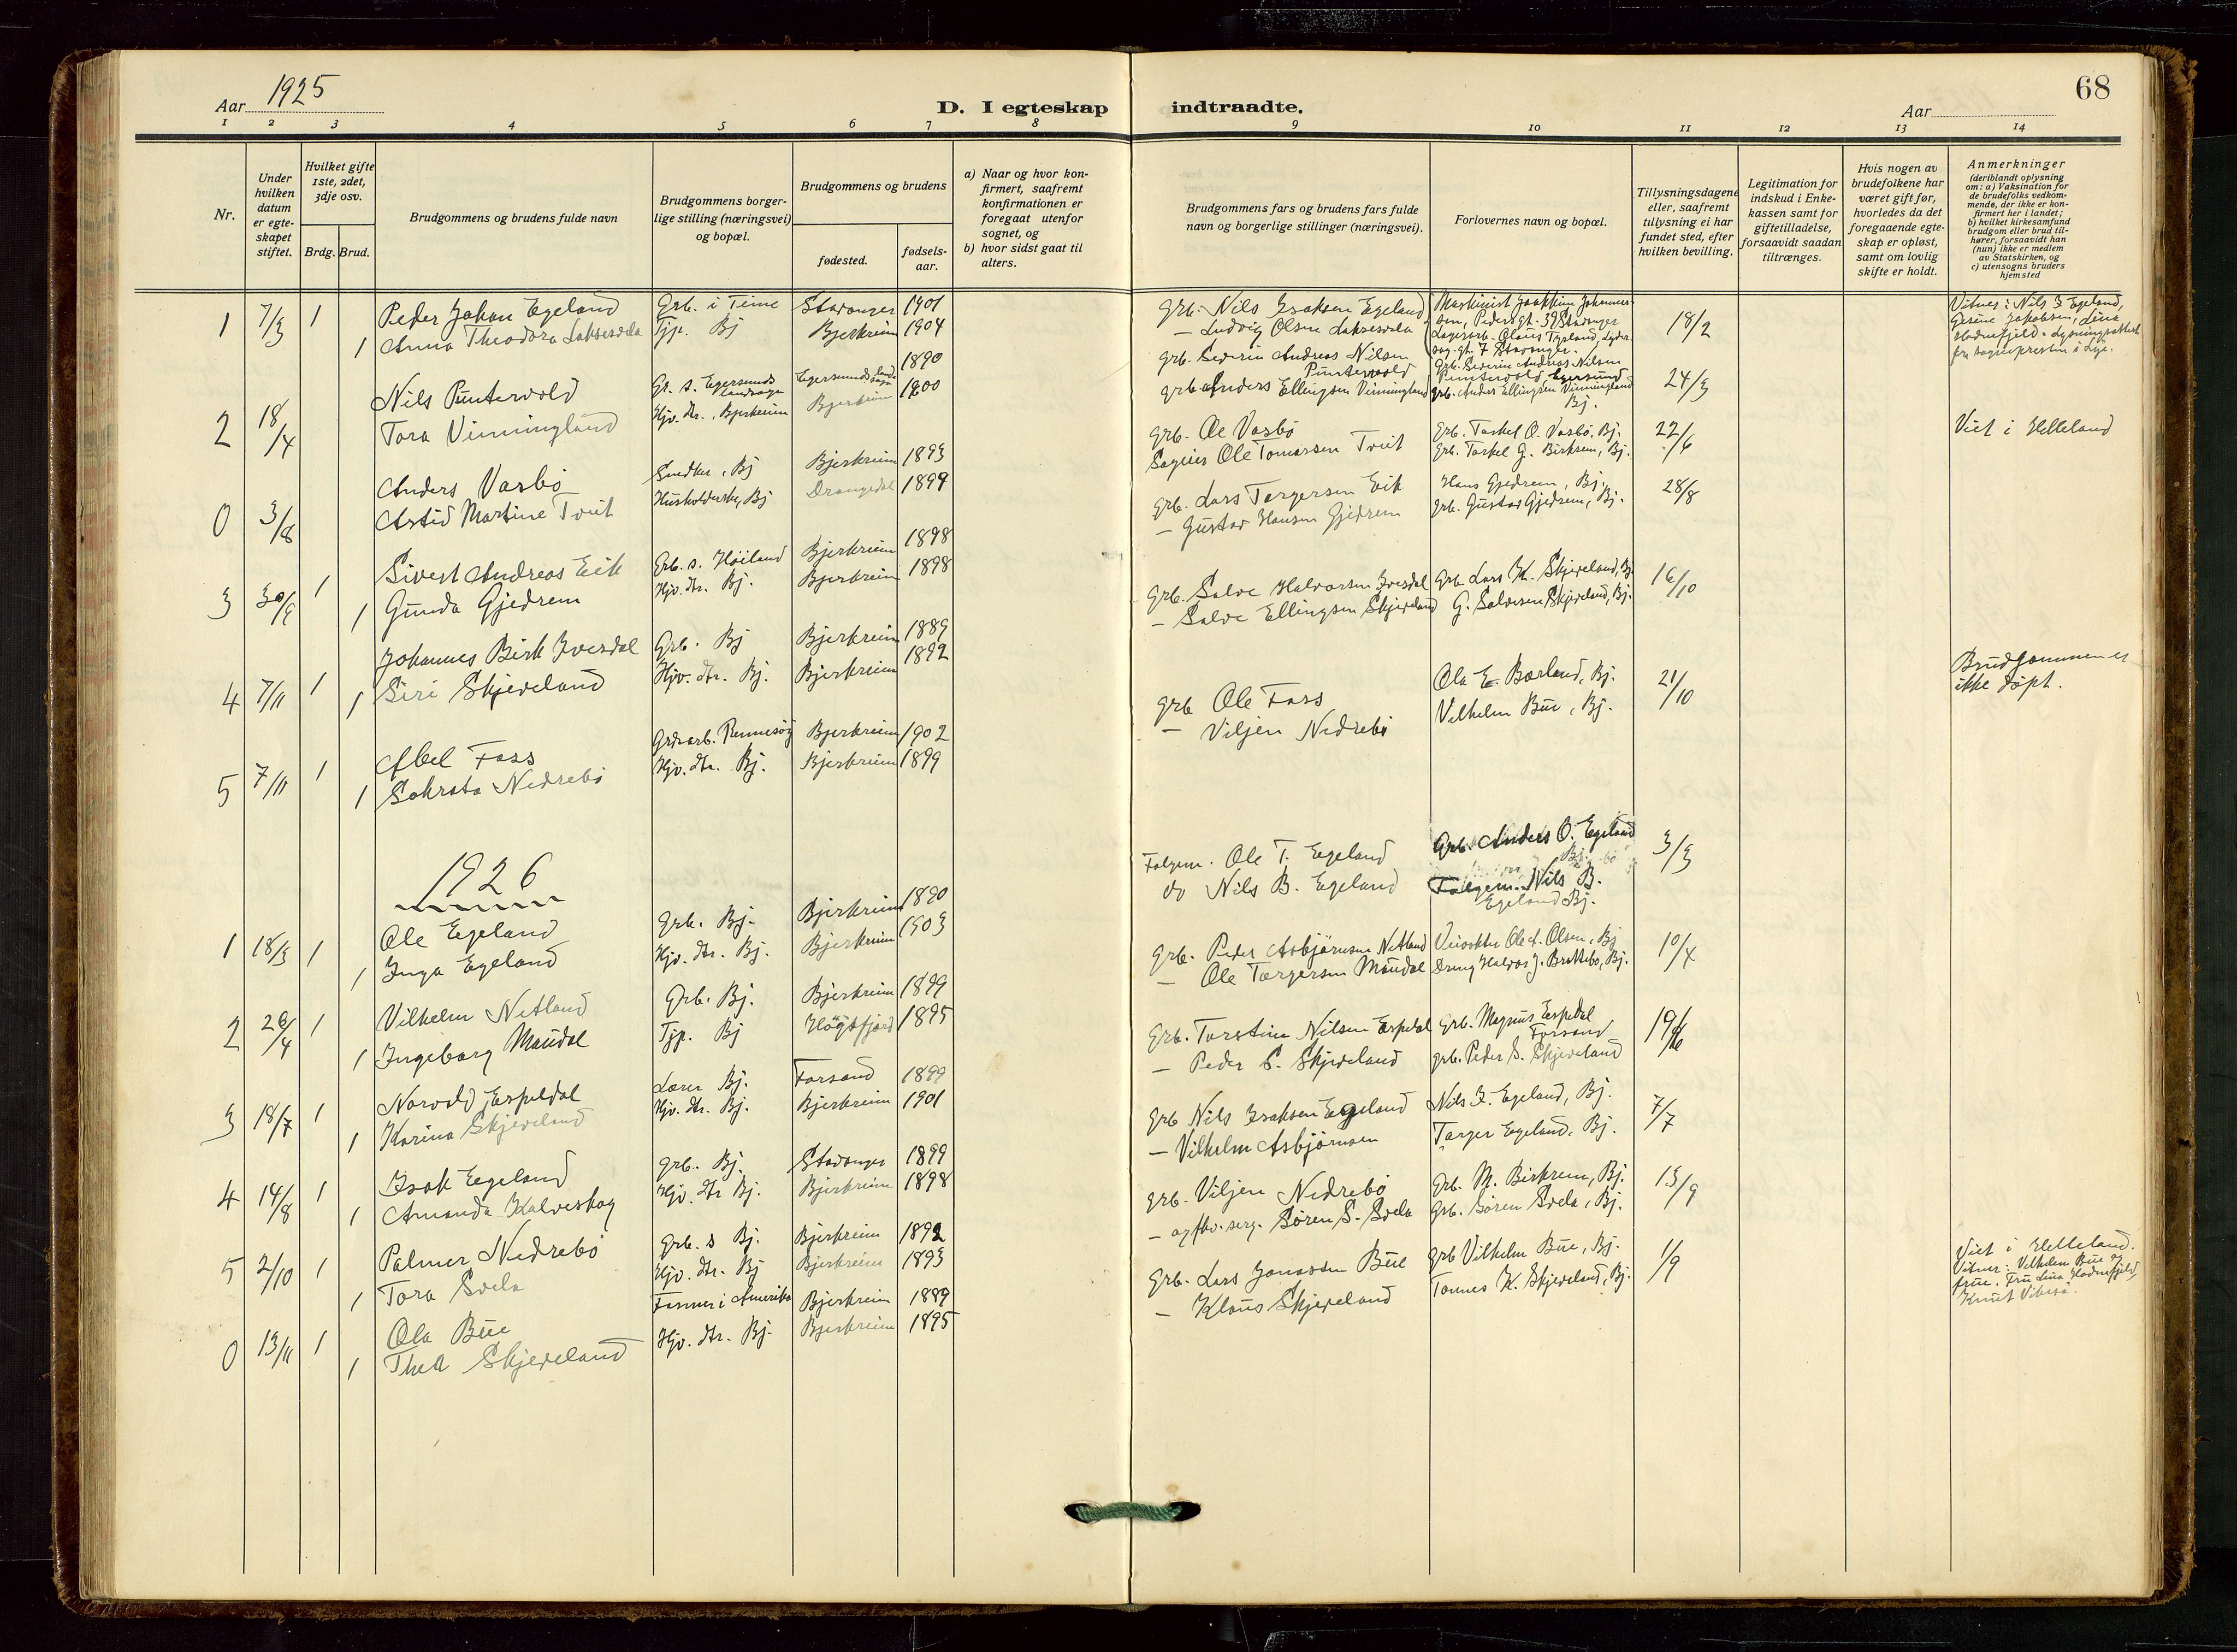 Aar 1925
D. I egteskap indtraadte.
Aar
68
1 2 3 4 5 6 7 8 9 10 11 12 13 14
Nr.
Under hvilken datum er egte-skapet stiftet.
Hvilket gifte 1ste, 2det, 3dje osv.
Brdg. Brud.
Brudgommens og brudens fulde navn
Brudgommens borger-lige stilling (næringsvei) og bopæl.
Brudgommens og brudens
fødested.
fødsels-aar.
a) Naar og hvor kon-firmert, saafremt konfirmationen er foregaat utenfor sognet, og
b) hvor sidst gaat til alters.
Brudgommens fars og brudens fars fulde navn og borgerlige stillinger (næringsvei).
Forlovernes navn og bopæl.
Tillysningsdagene eller, saafremt tillysning ei har fundet sted, efter hvilken bevilling.
Legitimation for indskud i Enke-kassen samt for giftetilladelse, forsaavidt saadan tiltrænges.
Hvis nogen av brudefolkene har været gift før, hvorledes da det foregaaende egte-skap er opløst, samt om lovlig skifte er holdt.
Anmerkninger
(deriblandt oplysning om: a) Vaksination for de brudefolks vedkom-mende, der ikke er kon-firmert her i landet; b) hvilket kirkesamfund brudgom eller brud til-hører, forsaavidt han (hun) ikke er medlem av Statskirken, og c) utensogns bruders hjemsted
1 7/3 1 Peder Johan Egeland Grb. i Time Stavanger 1901 Grb. Nils Isaksen Egeland Maskinist Joakkim Johannes-sen, Pedersgt. 39 Stavanger 18/2 Vitner: Nils I. Egeland,
1 Anna Theodora Laksesvela Tjp. Bj Bjerkreim 1904 — Ludvig Olsen Laksesvela
2 18/4 Nils Puntervold Gr. s. Egersunds landsogn Egersunds landsogn 1890 Grb. Severin Andreas Nilsen Puntervold Grb. Severin Andreas Nilsen Puntervold Egersund 24/3
Tora Vinningland Hjv. dtr., Bjerkreim Bjerkreim 1900 Grb. Anders Ellingsen Vinningland Grb. Anders Ellingsen Vinningland Bj.
0 3/8 Anders Vasbö Snedker, Bj Bjerkreim 1893 Grb. Ole Vasbö Grb. Torkel O. Vasbö, Bj. 22/6 Viet i Helleland
Astid Martine Tveit Husholderske, Bj Drangedal 1899 Ole Tomassen Tveit Grb. Torkel G. Birkrem, Bj.
3 30/9 1 Sivert Andreas Eik Grb. s. Höiland Bjerkreim 1898 Grb. Lars Torgersen Eik Hans Gjedrem, Bj. 28/8
1 Gunda Gjedrem Hjv. dtr. Bj. Bjerkreim 1898 — Gustav Hansen Gjedrem Grb. Gustav Gjedrem, Bj.
4 7/11 1 Johannes Birk Ivesdal Grb. Bj Bjerkreim 1889 Grb. Salve Halvorsen Ivesdal Grb. Lars K. Skjeveland, Bj. 16/10
1 Siri Skjeveland Hjv. dtr. Bj. Bjerkreim 1892 — Salve Ellingsen Skjeveland G. Salvesen Skjeveland, Bj.
5 7/11 1 Abel Foss Grdrarb. Rennesöy Bjerkreim 1902 Grb Ole Foss Ola E. Borland, Bj. 21/10 Brudgommen er ikke döpt.
1 Sakrata Nedrebö Hjv. dtr. Bj. Bjerkreim 1899 — Viljen Nedrebö Vilhelm Bue, Bj.
1926
1 18/3 1 Ole Egeland Grb. Bj. Bjerkreim 1890 Folgem. Ole T. Egeland Grb. Anders O. Egeland Bj. 3/3
1 Inga Egeland Hjv. dtr. Bj. Bjerkreim 1903 do Nils B. Egeland Folgem. Nils B. Egeland Bj.
2 26/4 1 Vilhelm Netland Grb. Bj. Bjerkreim 1899 Grb. Peder Asbjörnsen Netland Veivokter Ole A. Olsen, Bj 10/4
1 Ingeborg Maudal Tjp. Bj Högsfjord 1895 — Ole Torgersen Maudal Dreng Halvor J. Brattebö, Bj.
3 18/7 1 Norvald Espedal Lærer Bj. Forsand 1899 Grb. Torstein Nilsen Espedal Grb. Magnus Espedal Forsand 19/6
1 Karina Skjeveland Hjv. dtr. Bj. Bjerkreim 1901 — Peder S. Skjeveland grb. Peder S. Skjeveland
4 14/8 1 Isak Egeland Grb. Bj. Stavanger 1899 Grb Nils Isaksen Egeland Nils I. Egeland, Bj. 7/7
1 Amanda Kalveskog Hjv. dtr Bj. Bjerkreim 1898 — Vilhelm Asbjörnsen Torger Egeland, Bj.
5 2/10 1 Palmer Nedrebö Grb. s Bj. Bjerkreim 1892 Grb. Viljen Nedrebö Grb. M. Birkrem, Bj. 13/9
1 Tora Svela Hjv. dtr. Bj Bjerkreim 1893 — og fhv. serg. Sören S. Svela Grb. Sören Svela, Bj.
0 13/11 1 Ola Bue Farmer i Amerika Bjerkreim 1889 Grb. Lars Jonassen Bue Grb Vilhelm Bue, Bj. 1/9 Viet i Helleland. Vitner: Vilhelm Bue og frue. Fru Lina Hadnefjeld,
1 Thea Skjeveland Hjv. dtr. Bj. Bjerkreim 1895 — Klaus Skjeveland Tonnes K. Skjeveland, Bj.